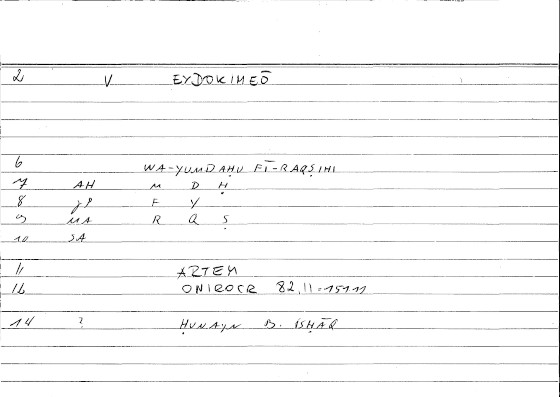 2 V EYDOKIMEŌ
6 WA-YUMDAḤU FĪ-RAQṢIHI
7 AH M D Ḥ
8 JP F Y
9 MA R Q Ṣ
10 SA
11 ARTEM
12 ONIROCR 82,11 = 15111
14 ? ḤUNAYN B. ISḤĀQ